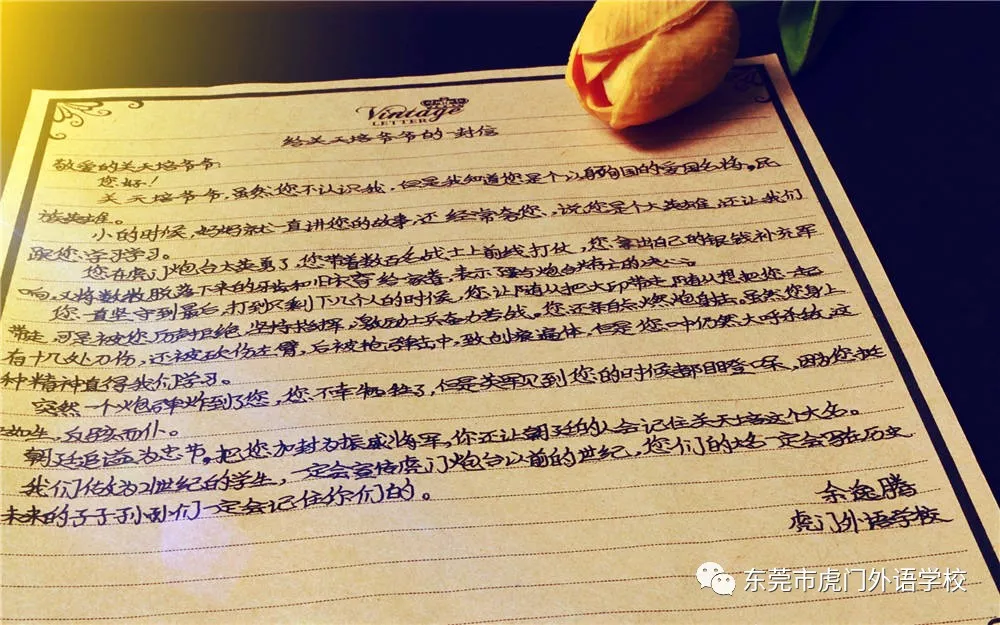 Vintage
LETTER
给关天培爷爷的一封信
敬爱的关天培爷爷:
您好!
关天培爷爷,虽然您不认识我,但是我知道您是个以身殉国的爱国名将。民
族英雄。
小的时候,妈妈就一直讲您的故事,还经常夸您,说您是个大英雄,还让我们
跟您学习学习。
您在虎门炮台太英勇了,您带着数百名战士上前线打仗,您拿出自己的银钱补充军
响,又将数数脱落下来的牙齿和旧衣寄给家眷,表示了与炮台共存亡的决心。
您一直坚守到最后,打到只剩下几个人的时候,您让随从把大印带走,随从想把您一起
带走,可是被您厉声拒绝,坚持抗军,激励士兵奋力苦战。您还亲自点燃炮自击。虽然您身上
有十几处刀伤,还被砍伤左臂,后被枪弹击中,致创痕遍体,但是您口中仍然大呼杀敌,这
种精神值得我们学习。
突然一个炮弹炸到了您,您不幸牺牲了,但是英军见到您的时候都目瞪口呆,因为您挺
立如生,反跌而仆。
朝廷追谥为忠节,把您加封为振威将军,你还让朝廷的人会记住关天培这个大名。
我们作为21世纪的学生,一定会宣传虎门炮台以前的世纪,您们的大名一定会写在历史
未来的子子孙孙们一定会记住你们的。
余逸腾
虎门外语学校
东莞市虎门外语学校